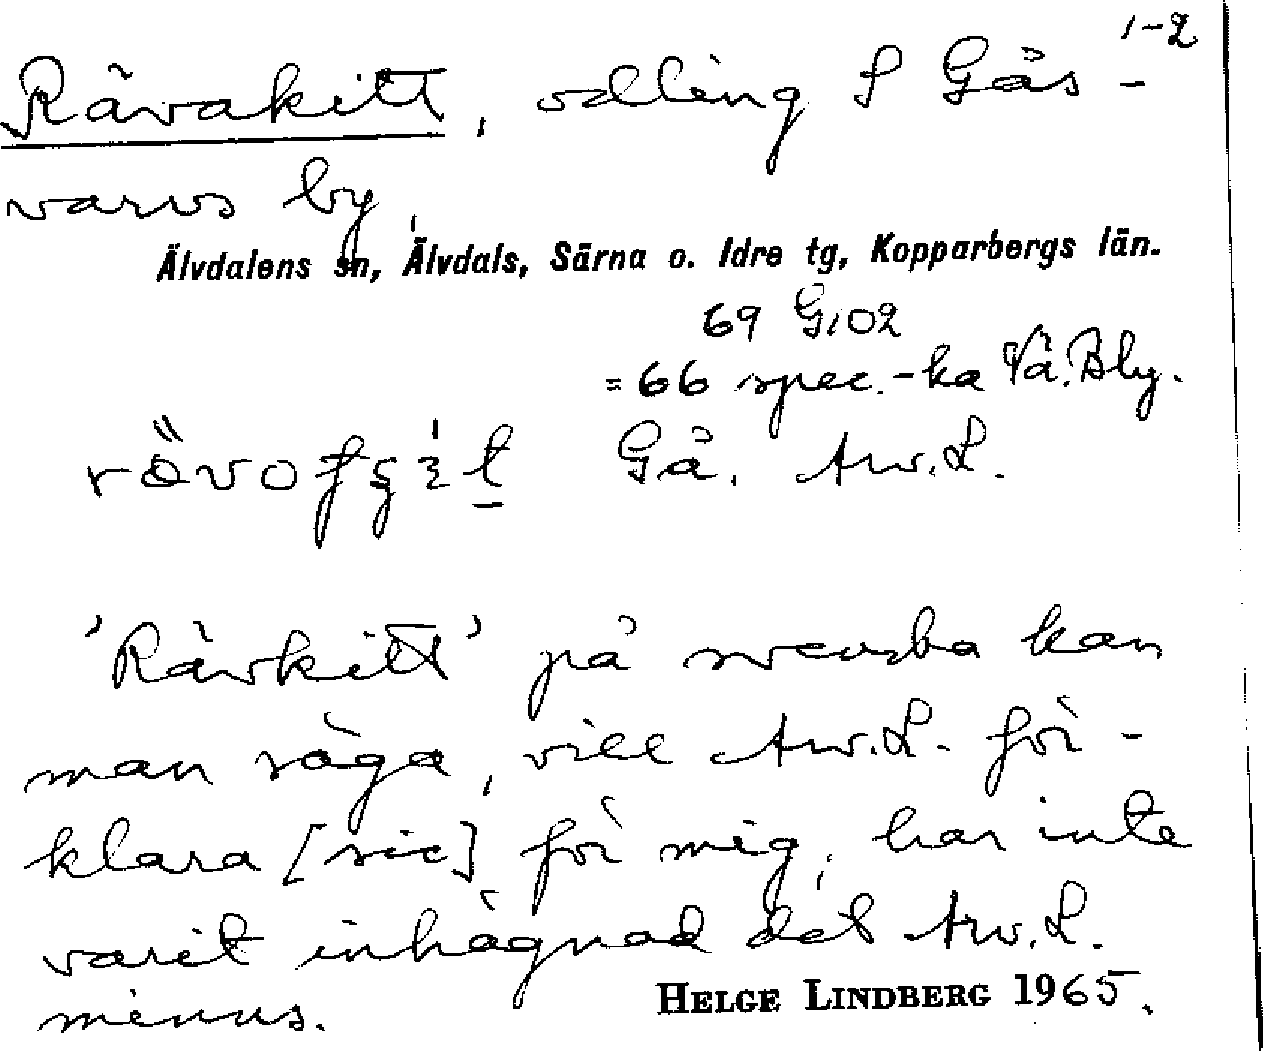 1-2
Rävakitt, odling S Gås-
varvs by,
Älvdalens sn, Älvdals, Särna o. Idre tg, Kopparbergs län.
69 G102
= 66 spec.-ka Vå. Bly.
Gå. Arv. L.
'Rävkitt' på svenska kan
man säga, vill Arv. L. för-
klara [sic] för mig; har inte
varit inhägnad det Arv. L.
minns.
HELGE LINDBERG 1965.